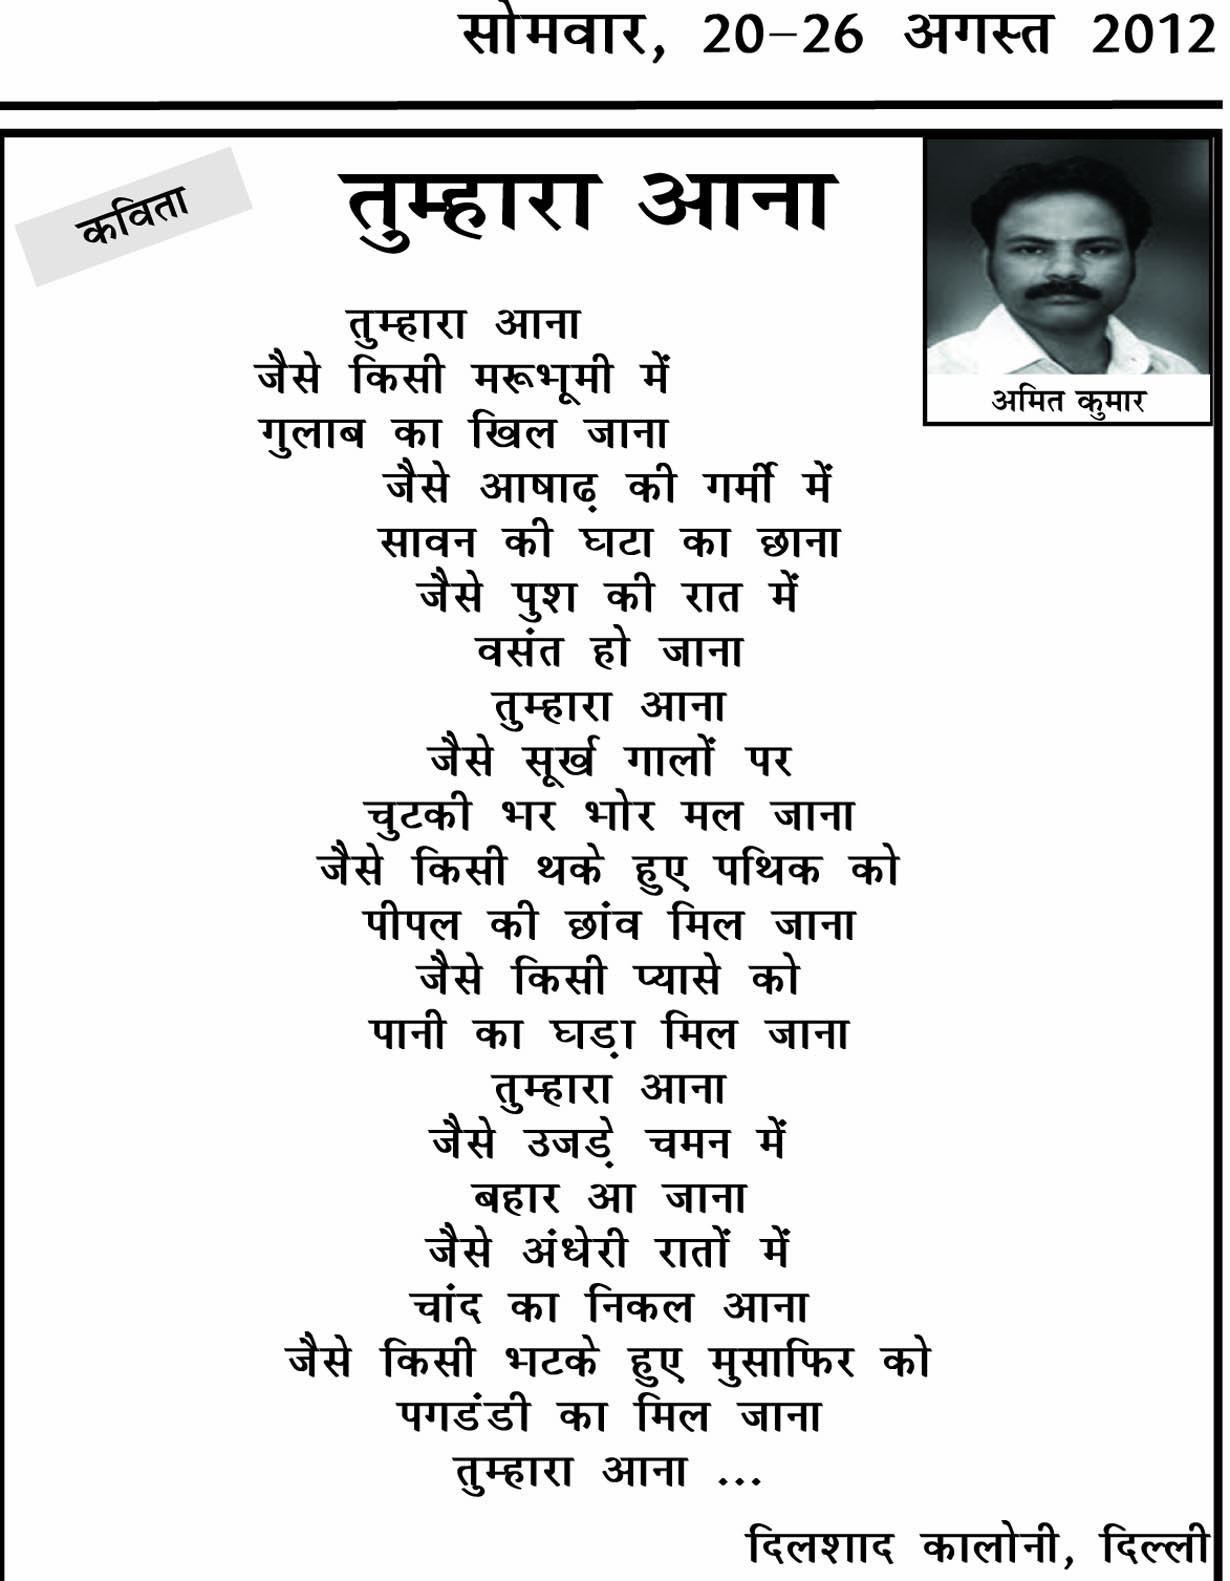 सोमवार, 20-26 अगस्त 2012
कविता
तुम्हारा आना
अमित कुमार
तुम्हारा आना
जैसे किसी मरूभूमी में
गुलाब का खिल जाना
जैसे आषाढ़ की गर्मी में
सावन की घटा का छाना
जैसे पुश की रात में
वसंत हो जाना
तुम्हारा आना
जैसे सूर्ख गालों पर
चुटकी भर भोर मल जाना
जैसे किसी थके हुए पथिक को
पीपल की छांव मिल जाना
जैसे किसी प्यासे को
पानी का घड़ा मिल जाना
तुम्हारा आना
जैसे उजड़े चमन में
बहार आ जाना
जैसे अंधेरी रातों में
चांद का निकल आना
जैसे किसी भटके हुए मुसाफिर को
पगडंडी का मिल जाना
तुम्हारा आना ...
दिलशाद कालोनी, दिल्ली